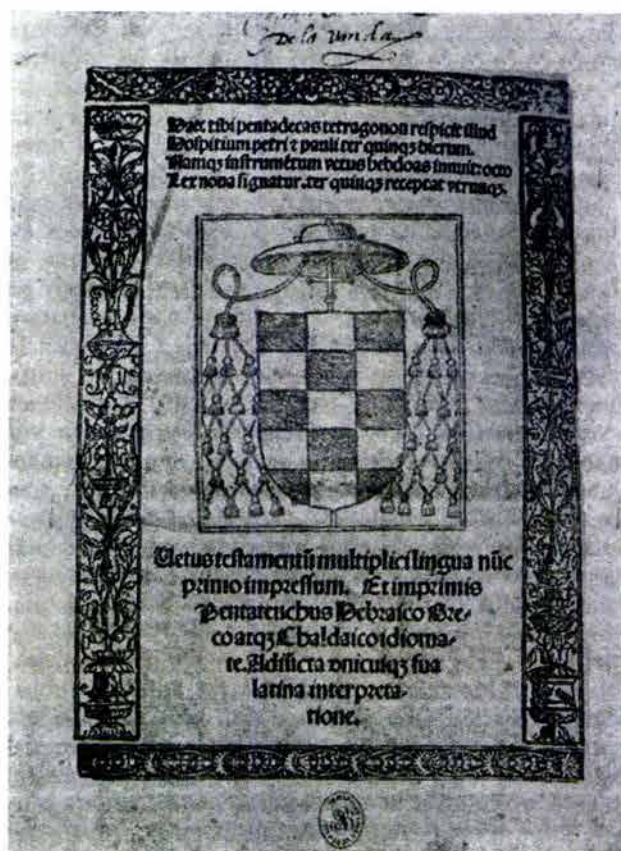 De la
Haec tibi pentadecas tetragonon respicit illud
Hospitium petri ⁊ pauli ter quinqȝ dierum.
Namqȝ instrumētum vetus hebdoas innuit: octo
Lex nova signatur. ter quinqȝ receptat vtrunqȝ.
Uetus testamentū multiplici lingua nūc
primo impressum. Et imprimis
Pentateuchus Hebraico Gre-
co atqȝ Chaldaico idioma-
te. Adiūcta vnicuiqȝ sua
latina interpreta-
tione.